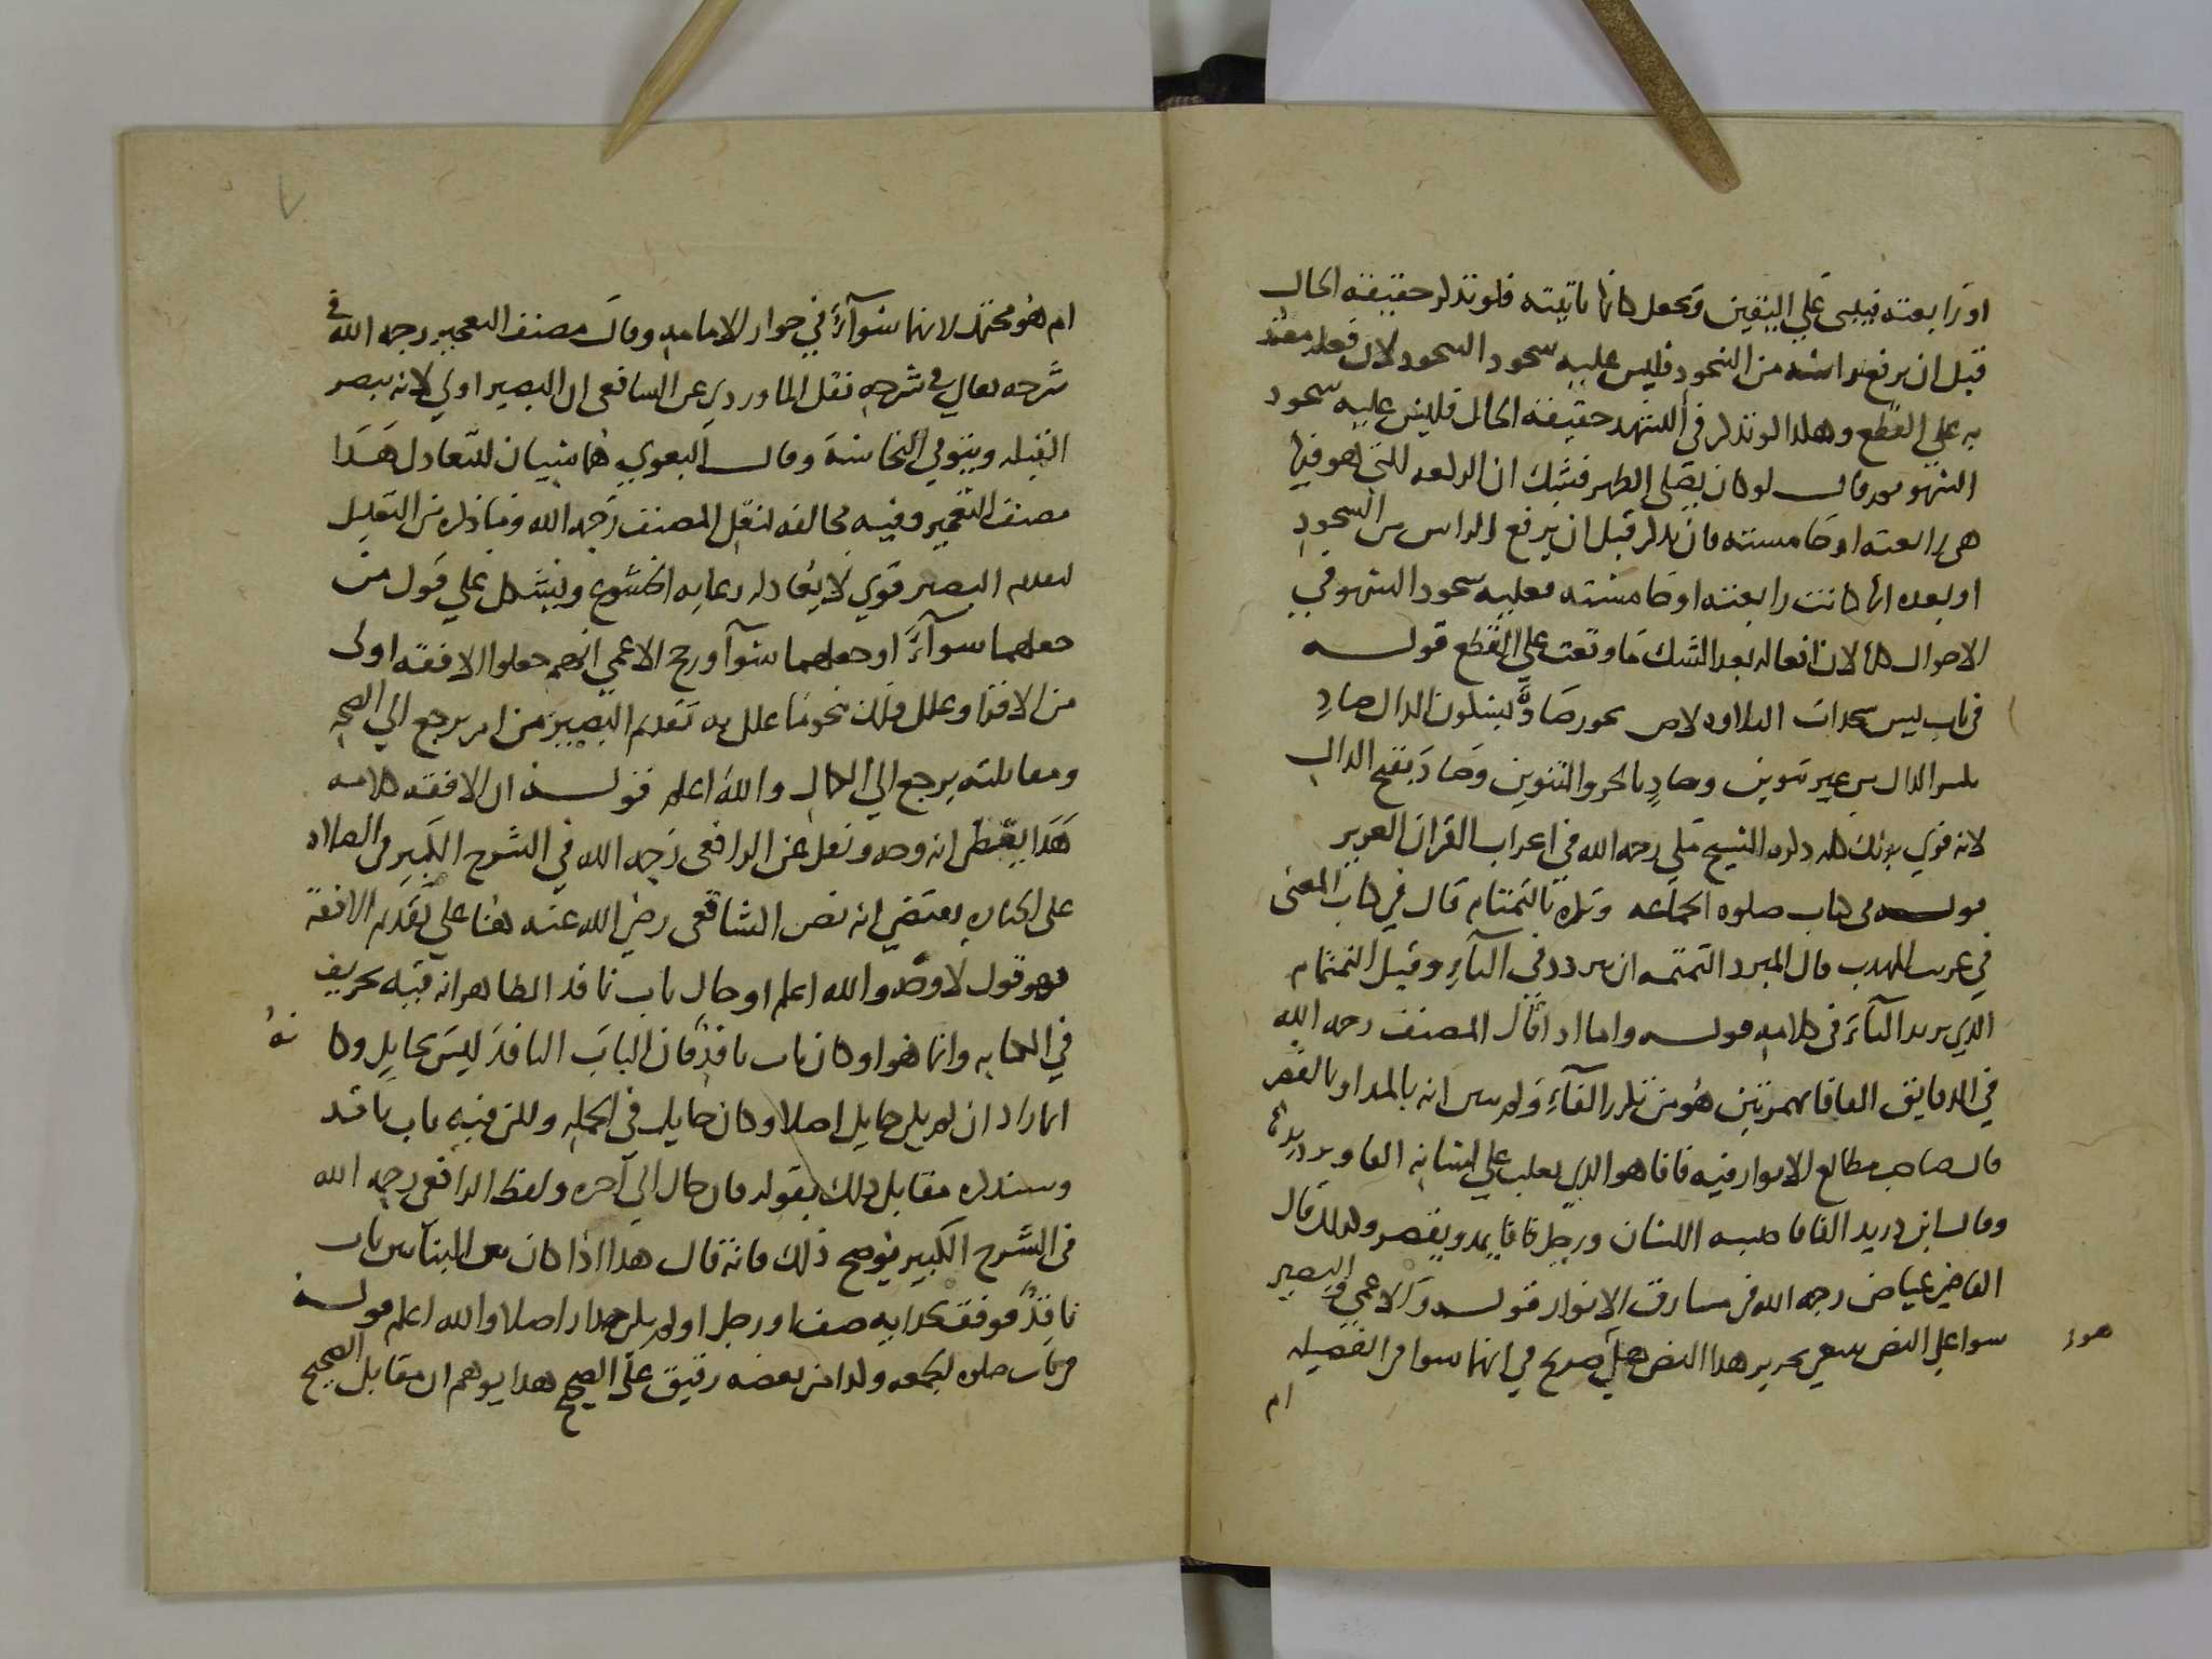 او رابعته فيبني علي اليقين وتجعل كانها ثابتته فلو تذكر حقيقة الحال
قبل ان يرفع راسه من السجود فليس عليه سجود السجود لان فعله معتد
به علي القطع وهكذا لو تذكر في التشهد حقيقة الحال فليس عليه سجود
السهو وقال لو كان يصلي الظهر فشك ان الركعه التي هو فيها
هي رابعته او خامسته فان تذكر قبل ان يرفع الراس من السجود
او بعده انها كانت رابعته او خامسته فعليه سجود السهو في
الاحوال كلها لان افعاله بعد الشك ما وقعت علي القطع قوله
في باب ليس سجدات التلاوه لاص يجوز صاد بسكون الدال صاد
بكسر الدال من غير تنوين وصاد بالجر والتنوين وصاد بفتح الدال
لانه قوي بذلك كله ذكره الشيخ مكي رحمه الله في اعراب القران العزيز
قوله في كتاب صلوه الجماعه وتكره بالتمتام قال في كتاب المغني
في غريب المهذب قال المبرد التمتمه ان يردد في التاء وقيل التمتام
الذي يردد التاء في كلامه قوله واما اذا قال المصنف رحمه الله
في الدقايق الفافا بهمزتين هو من تكرر الفاء ولم يبين انه بالمد او بالقصر
قال صاحب مطالع الانوار فيه فافا هو الذي يغلب علي لسانه الفا ويرددها
وقال ابن دريد الفافا حبسه اللسان ورجل فافا يمد ويقصر وكذلك قال
القاضي عياض رحمه الله في مشارق الانوار قوله والاعمي والبصير
سوا علي النص ينبغي تحرير هذا النص هل صريح في انهما سوا في الفضيله
هو
ام
٧
ام هو محتمل لانهما سواء في جواز الامامه وقال مصنف التعجيز رحمه الله في
شرحه تعالي في شرحه نقل الماوردي عن الشافعي ان البصير اولي لانه يبصر
القبله ويتوقي النجاسة وقال البغوي هما سيان للتعادل هذا
مصنف التعجيز وفيه مخالفه لنقل المصنف رحمه الله وما ذكره من التعليل
لتقديم البصير قوي لا يعادله رعايه الخشوع ويشكل علي قول من
جعلهما سواء او جعلهما سوآ ورجح الاعمي انهم جعلوا الافقه اولي
من الاقرا وعلل ذلك نحو ما علل به تقديم البصير من امر يرجع الي الصحه
ومقابلته يرجع الي الكمال والله اعلم قوله ان الافقه كلامه
هذا يعطي انه وجه ونقل عن الرافعي رحمه الله في الشرح الكبير في الصلاه
علي الجنازه يقتضي انه نص الشافعي رضي الله عنه هنا علي تقديم الافقه
فهو قول لا وجه والله اعلم او حال باب نافذ الظاهر انه فيه تحريف
في الكتابه وانما هو او كان باب نافذ فان الباب النافذ ليس بحايل وكا نه
انما راد ان لم يكن حايل اصلا او كان حايل في الجمله ولكن فيه باب نافذ
وسنذكره مقابل ذلك بقوله فان حال الي اخره ولفظ الرافعي رحمه الله
في الشرح الكبير يوضح ذلك فانه قال هذا اذا كان بين البنايين باب
نافذ فوقف بحذايه صف او رجل او لم يكن جدار اصلا والله اعلم قوله
في باب صلوه الجمعه ولد من بعضه رقيق علي الصحيح هذا يوهم ان مقابل الصحيح